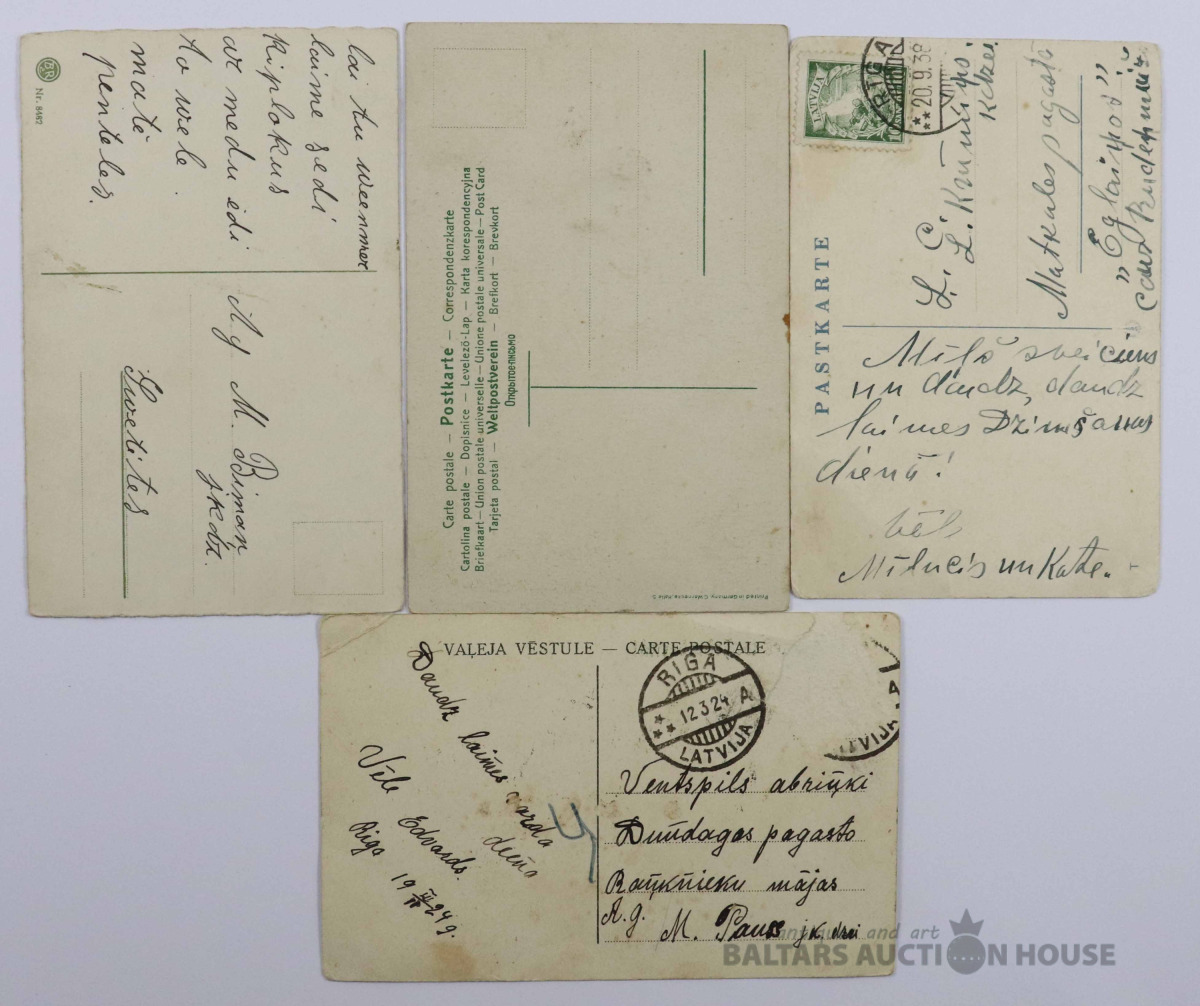 BR
Nr. 8482
lai tu weenmer
laime sedi
kiplokus
ar medu edi
to wele
mate
penteles.
Ag M. Biman
jkdz.
Swetites
Carte postale — Postkarte — Correspondenzkarte
Cartolina postale — Dopisnice — Levelező-Lap — Karta korespondencyjna
Briefkaart — Union postale universelle — Unione postale universale — Post Card
Tarjeta postal — Weltpostverein — Brefkort — Brevkort
Открытое-письмо
LATVIJA
RIGA
20.9.38
PASTKARTE
L. C.
L. Krūmiņo
kdzei
Matkules pagastā
"Eglaipos"
caur
Mīļš sveiciens
un daudz, daudz
laimes Dzimšanas
dienā!
vēl
Mīlucis un Kate.
VAĻEJA VĒSTULE — CARTE POSTALE
Daudz laimes varda
diena
Vēle Edvards.
Riga 19
RIGA
12.3.24 A
LATVIJA
A
LATVIJA
Ventspils abriņķi
Dundagas pagasto
Raņķnieku mājas
A.g.
M. Pauss jk. dzei
antique and art
BALTARS AUCTION HOUSE